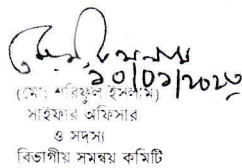 ১০/০১/২০২৩
(মোঃ শরিফুল ইসলাম)
সাইফার অফিসার
ও সদস্য
বিভাগীয় সমন্বয় কমিটি